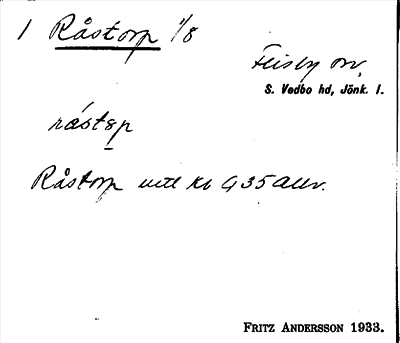 1 Råstorp 1/8
Flisby sn,
S. Vedbo hd, Jönk. l.
råstəp
Råstorp utl kr G 35 Allv.
FRITZ ANDERSSON 1933.